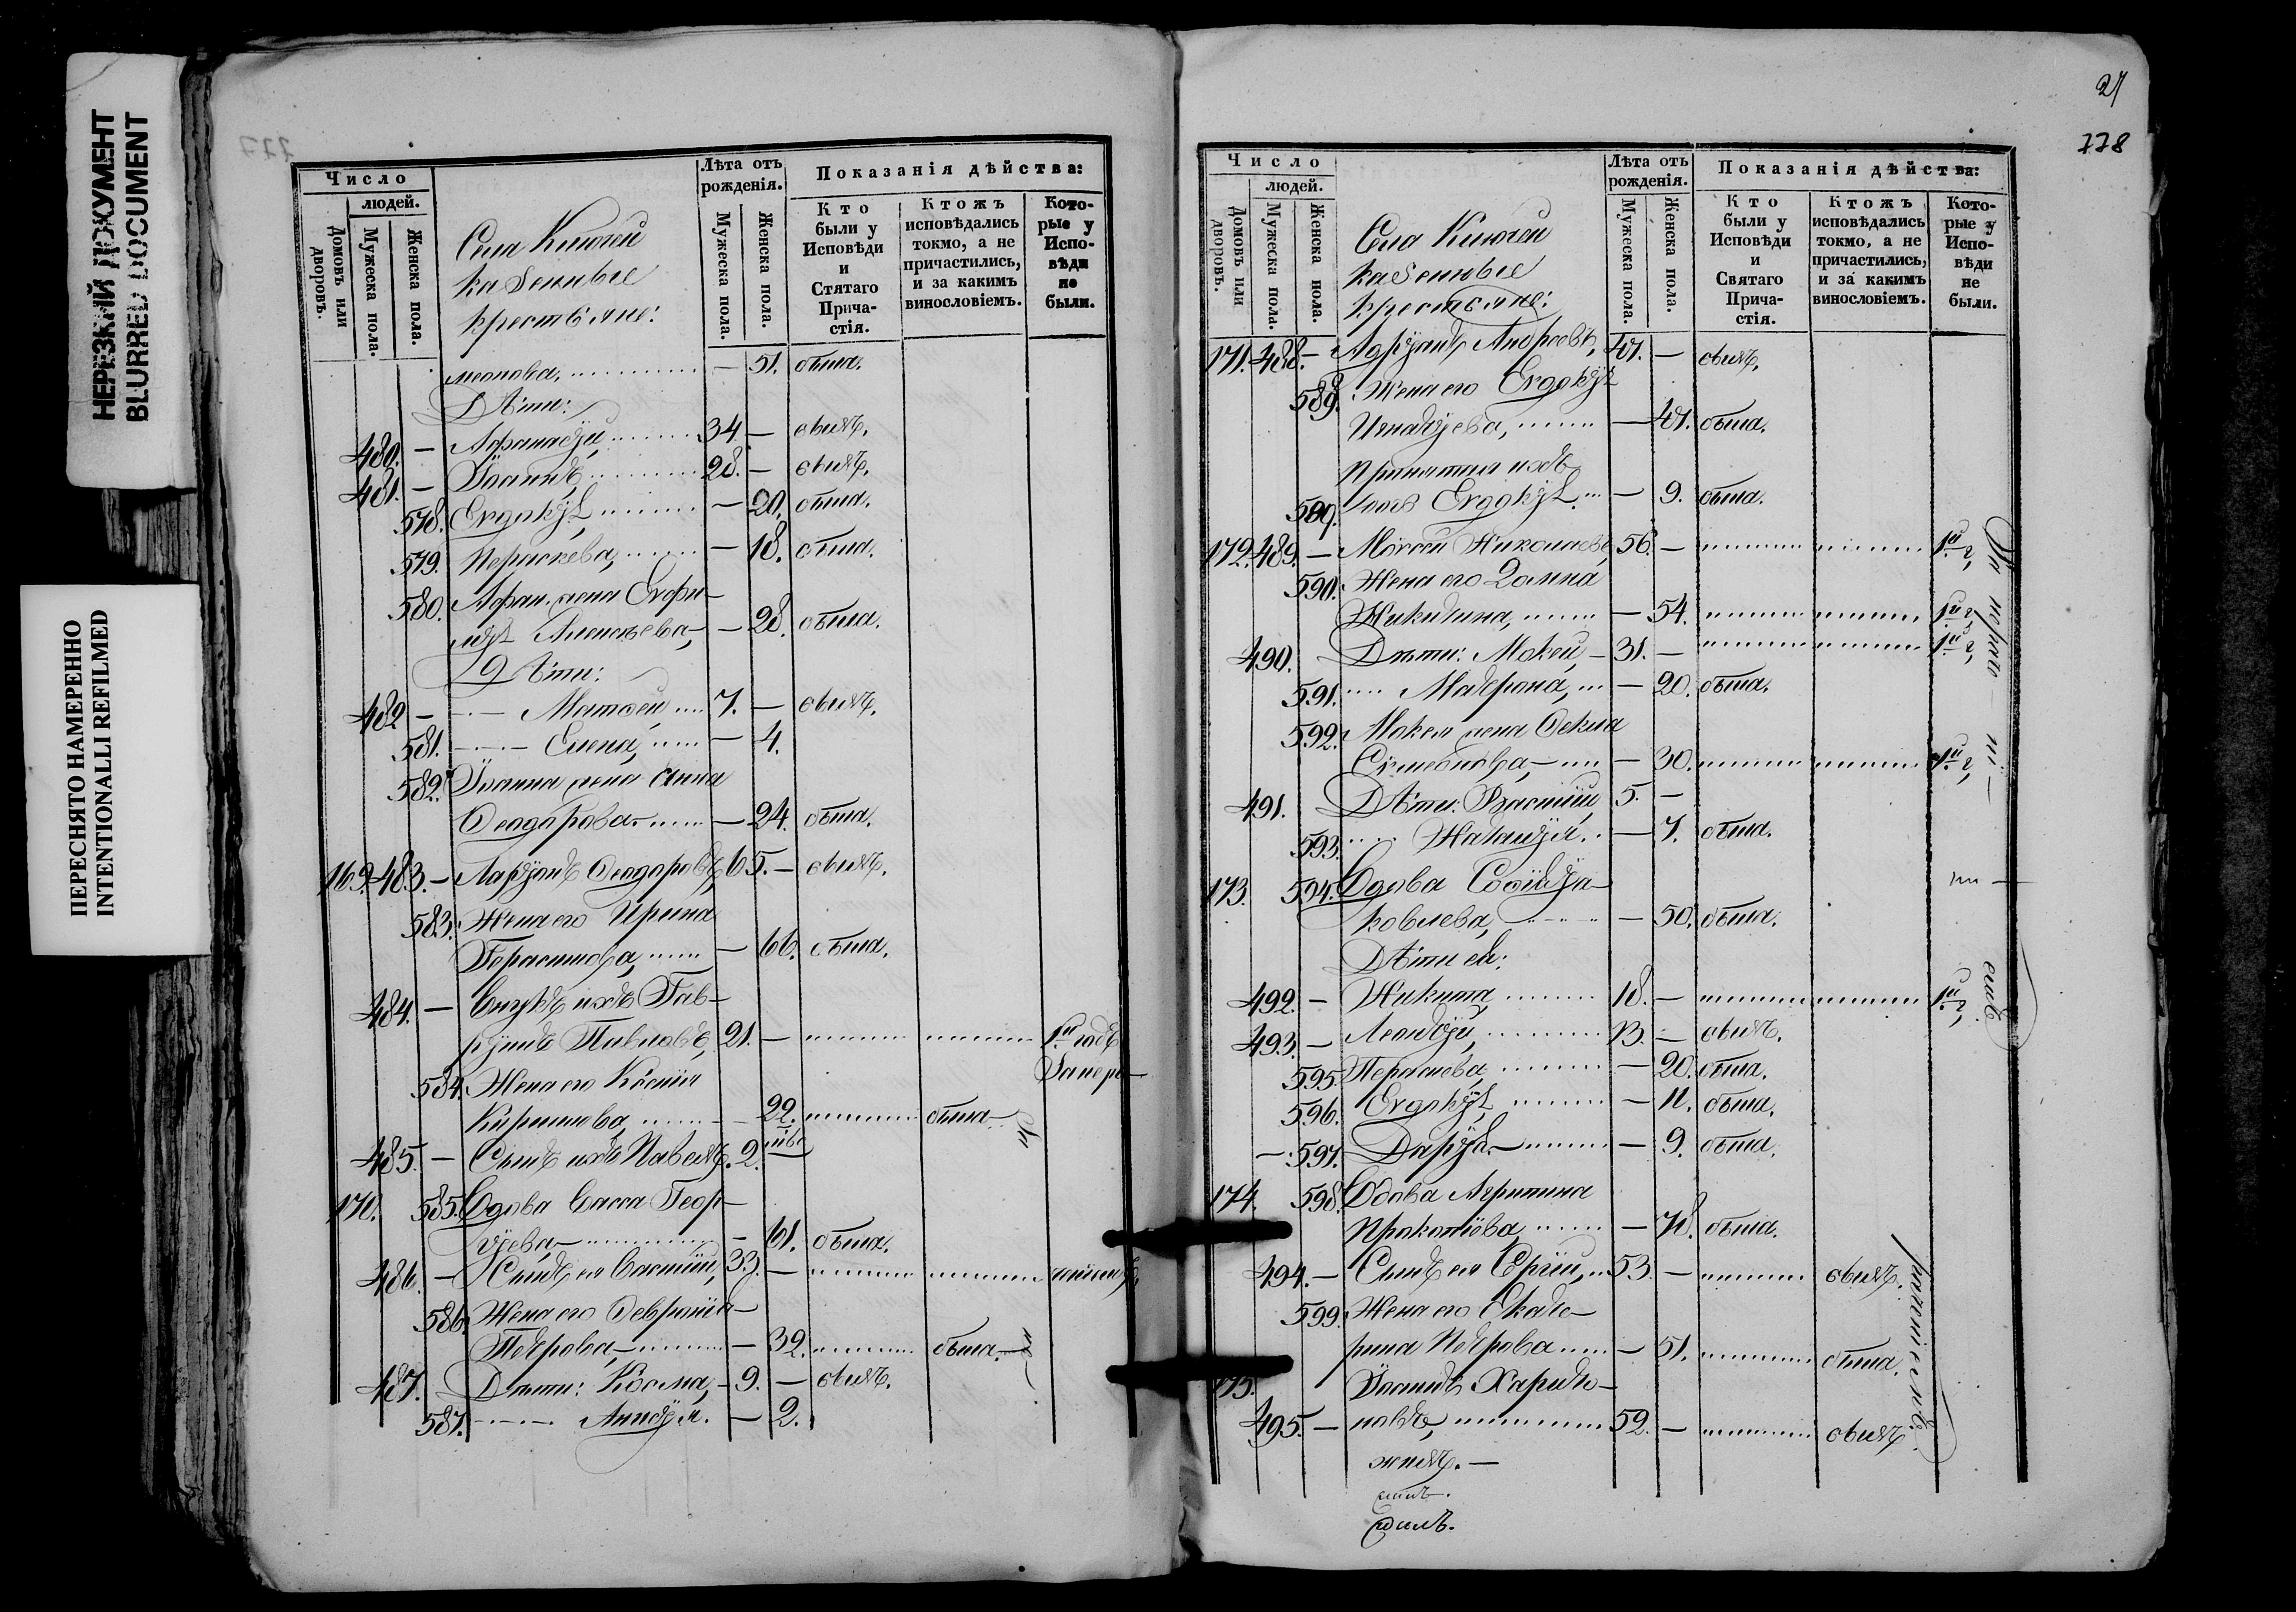 НЕРЕЗКИЙ ДОКУМЕНТ
BLURRED DOCUMENT
ПЕРЕСНЯТО НАМЕРЕННО
INTENTIONALLI REFILMED
777
Число
людей.
Домовъ или дворовъ.
Мужеска пола.
Женска пола.
Лѣта отъ рожденія.
Мужеска пола.
Женска пола.
Показанія дѣйства:
Кто были у Исповѣди и Стятаго Прича-стія.
Ктожъ исповѣдались токмо, а не причастились, и за какимъ винословіемъ.
Кото-рые у Испо-вѣди не были.
Села Ключей
казенные
крестьяне:
меонова, — 51. была.
Дѣти:
480. — Афанасій, 34. — былъ,
481. — Іоаннъ, 28. — былъ,
578. Евдокія, — 20. была.
579. Параскева, — 18. была.
580. Афан. жена Евфи-
мія Алексѣева, — 28. была.
Дѣти:
482 — Матѳей, 7. — былъ,
581. Елена, — 4.
582. Іоанна жена Анна
Ѳеодорова — 24. была.
169. 483. — Ларіонъ Ѳеодоровъ, 65. — былъ,
583. Жена его Ирина
Герасимова, — 66. была.
484. — Внукъ ихъ Гав-
ріилъ Павловъ, 21. — 1й годъ
584. Жена его Ксенія
Кирилова, — 22. была
485. — Сынъ ихъ Павелъ. 2.
170. 585. Вдова Васса Геор-
гіева, — 61. была.
486. — Сынъ ея Василій, 33. —
586. Жена его Февронія
Петрова, — 32. была.
487. Дѣти: Косма, 9. — былъ,
587. Анисія. — 2.
27
778
Число
людей.
Домовъ или дворовъ.
Мужеска пола.
Женска пола.
Лѣта отъ рожденія.
Мужеска пола.
Женска пола.
Показанія дѣйства:
Кто были у Исповѣди и Святаго Прича-стія.
Ктожъ исповѣдались токмо, а не причастились, и за какимъ винословіемъ.
Кото-рые у Испо-вѣди не были.
Села Ключей
казенные
крестьяне:
171. 488. — Адріанъ Андреевъ, 47. — былъ,
589. Жена его Евдокія
Игнатіева, — 47. была.
Пріимышъ ихъ
589. Евдокія. — 9. была.
172. 489. — Моисей Николаевъ, 56. — 1й г,
590. Жена его Домна
Никитина, — 54. 1й г,
490. Дѣти: Мокей, — 31. — 1й г,
591. Матрона, — 20. была.
592. Мокея жена Ѳекла
Симеонова, — 30. 1й г,
491. Дѣти: 5. —
593. Наталія. — 7. была.
173. 594. Вдова Софія Іа-
ковлева, — 50. была.
Дѣти ея:
492. — Никита, 18. — 1й г,
493. — Леонтій, 13. — былъ.
595. Параскева, — 20. была.
596. Евдокія, — 11. была.
597. Дарія. — 9. была.
174. 598. Вдова Агрипина
Прокопіева, — 78. была.
494. — Сынъ ея Ергій, 53. — былъ.
599. Жена его Екате-
рина Петрова — 51. была.
175. Іоаннъ Харито-
495. — новъ, 52. — былъ